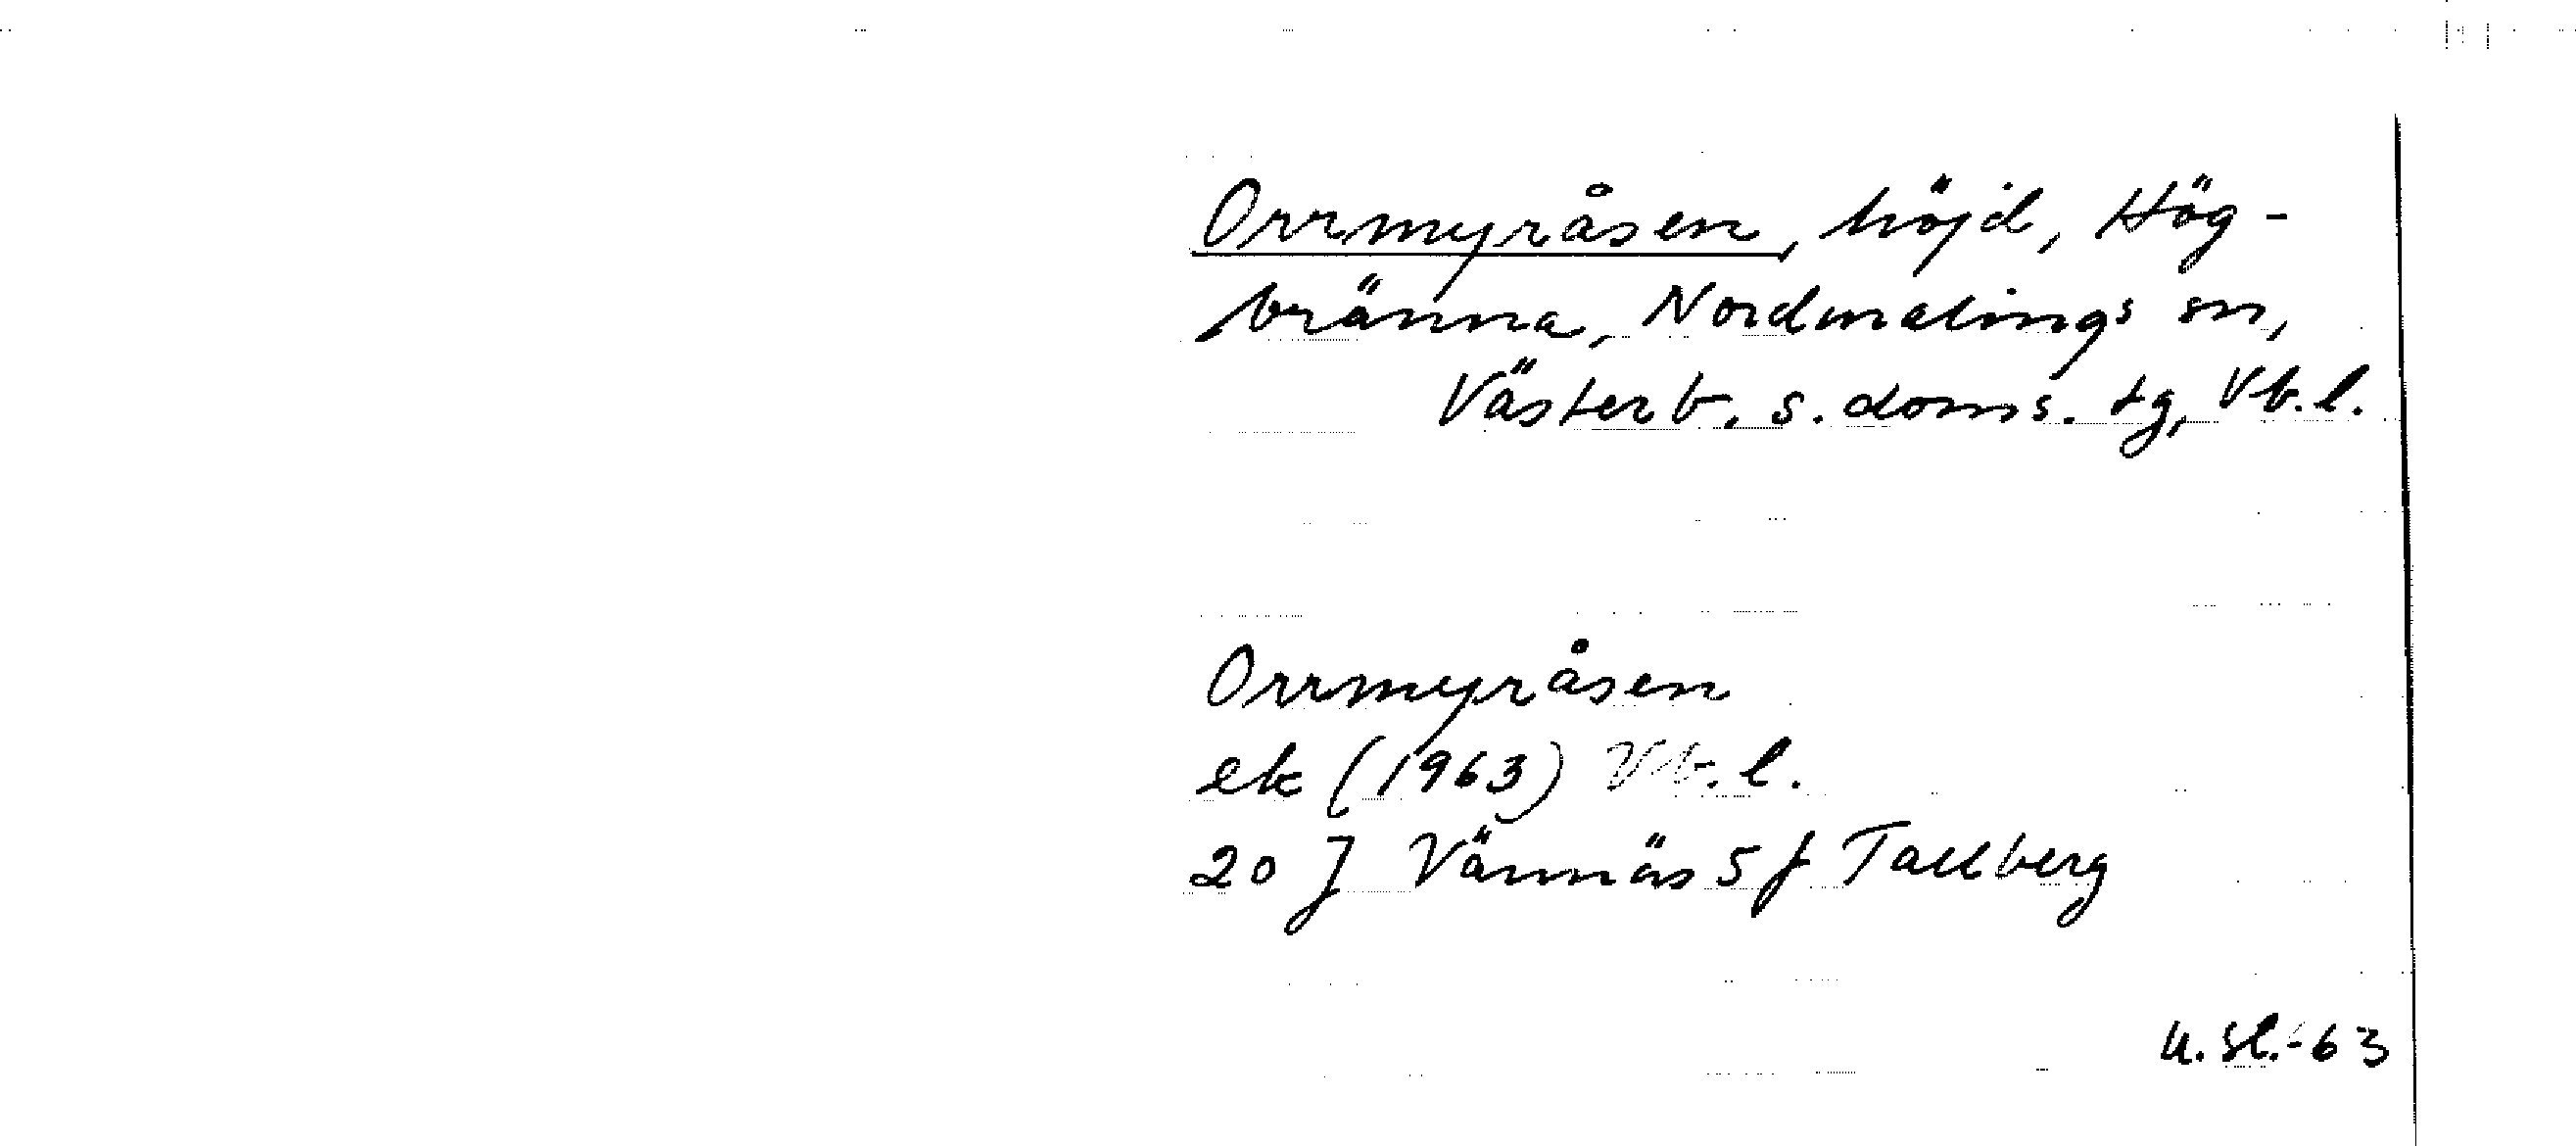 Orrmyråsen, höjd, Hög-
bränna, Nordmalings sn,
Västerb. s. doms. tg, Vb. l.
Orrmyråsen
ek (1963) Vb. l.
20 J Vännäs 5 f Tallberg
U. Sl. -63